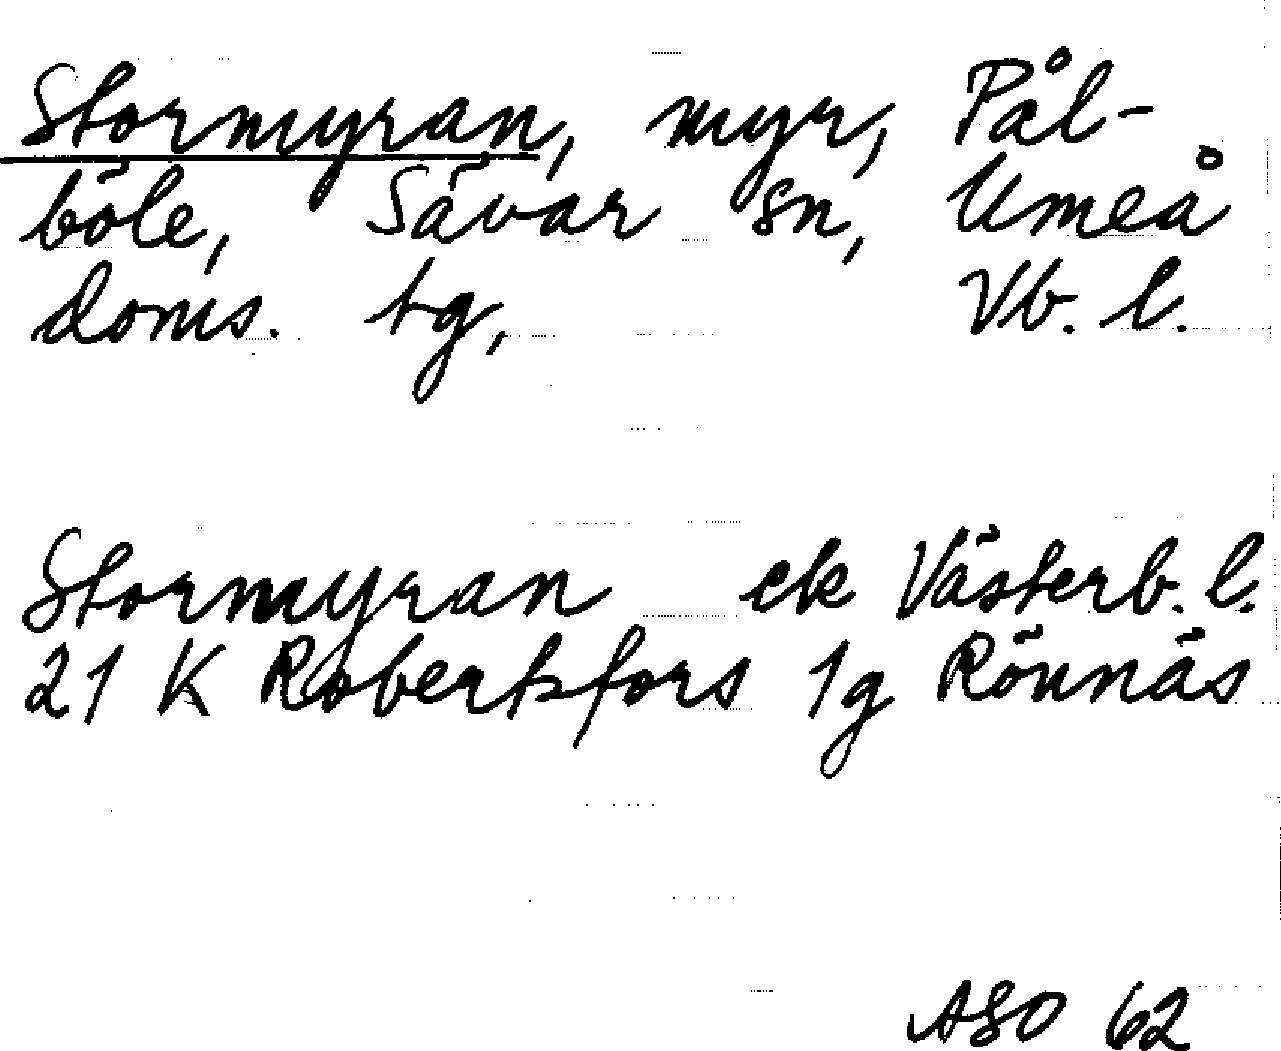 Stormyran, myr, Pål-
böle, Sävar sn, Umeå
doms. tg, Vb. l.
Stormyran ek Västerb. l.
21 K Robertsfors 1g Rönnäs
ASO 62